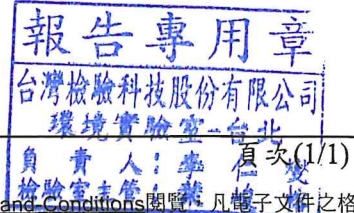 報告專用章
台灣檢驗科技股份有限公司
環境實驗室-台北
頁次(1/1)
負責人:
檢驗室主管:
and-Conditions閱覽,凡電子文件之格